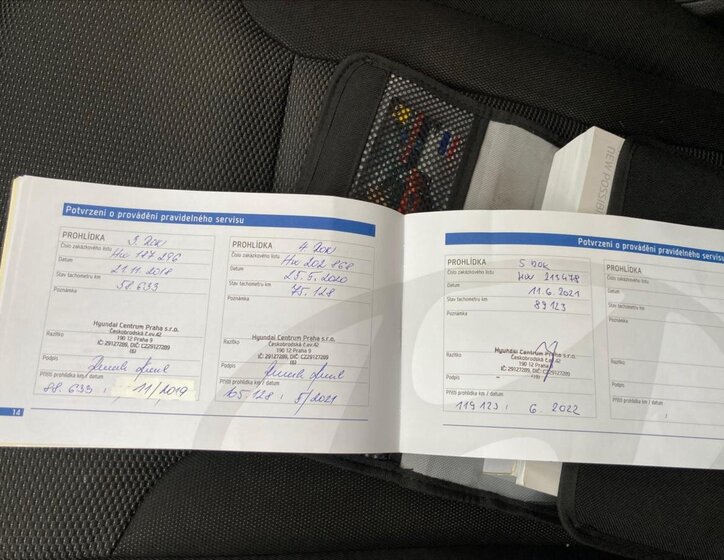 Potvrzení o provádění pravidelného servisu
PROHLÍDKA 3. ROK
Číslo zakázkového listu HW 187 296
Datum 21.11.2018
Stav tachometru km 58 633
Poznámka
Razítko
Hyundai Centrum Praha s.r.o.
Českobrodská č.ev.42
190 12 Praha 9
IČ: 29127289, DIČ: CZ29127289
(6)
Podpis
Příští prohlídka km / datum
88.633 / 11/2019
14
PROHLÍDKA 4 ROK
Číslo zakázkového listu HW 202 868
Datum 25.5.2020
Stav tachometru km 75.128
Poznámka
Razítko
Hyundai Centrum Praha s.r.o.
Českobrodská č.ev.42
190 12 Praha 9
IČ: 29127289, DIČ: CZ29127289
(6)
Podpis
Příští prohlídka km / datum
105.128 / 5/2021
Potvrzení o provádění pravidelného servisu
PROHLÍDKA 5 ROK
Číslo zakázkového listu HW 211478
Datum 11.6.2021
Stav tachometru km 89123
Poznámka
Razítko
Hyundai Centrum Praha s.r.o.
Českobrodská č.ev.42
190 12 Praha 9
IČ: 29127289, DIČ: CZ29127289
Podpis
Příští prohlídka km / datum
119 123 / 6. 2022
PROHLÍDKA
Číslo zakázkového listu
Datum
Stav tachometru km
Poznámka
Razítko
Podpis
Příští prohlídka km / datum
/